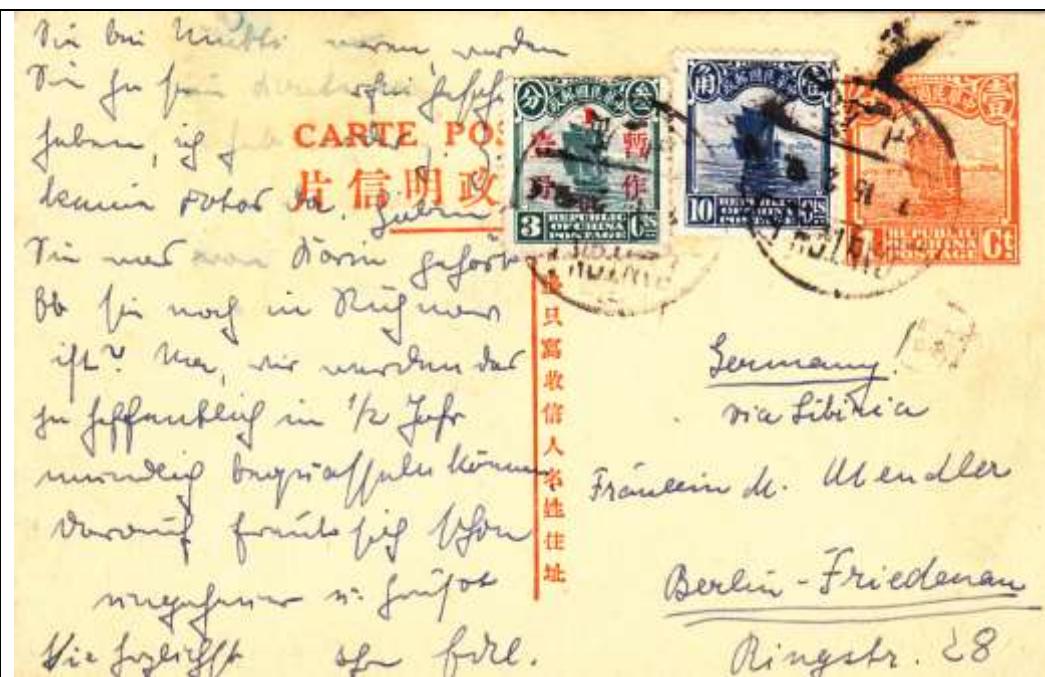 Sie bei Mutti waren, werden
Sie ja sein gesehen
haben, ich habe
keine Fotos da. Haben
Sie was von Karin gehört
Ob sie noch in
ist? Na, wir werden das
ja hoffentlich in 1/2 Jahr
mündlich bequasseln können
Darauf freut sich schon
ungeheuer u. grüßt
Sie herzlichst Ihr
CARTE POS
片信明政
分 叁
暫作
3 Cts
REPUBLIC
OF CHINA
POSTAGE
角 壹
10 Cts
REPUBLIC
OF CHINA
POSTAGE
壹
1 Ct.
REPUBLIC
OF CHINA
POSTAGE
只寫收信人名姓住址
Germany
via Sibiria
Fräulein M. Mendler
Berlin-Friedenau
Ringstr. 28